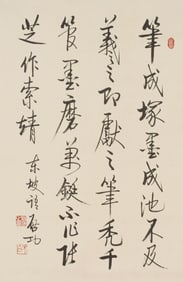 筆成塚墨成池不及
羲之即獻之筆禿千
管墨磨萬鋌不作張
芝作索靖
东坡語 啓功